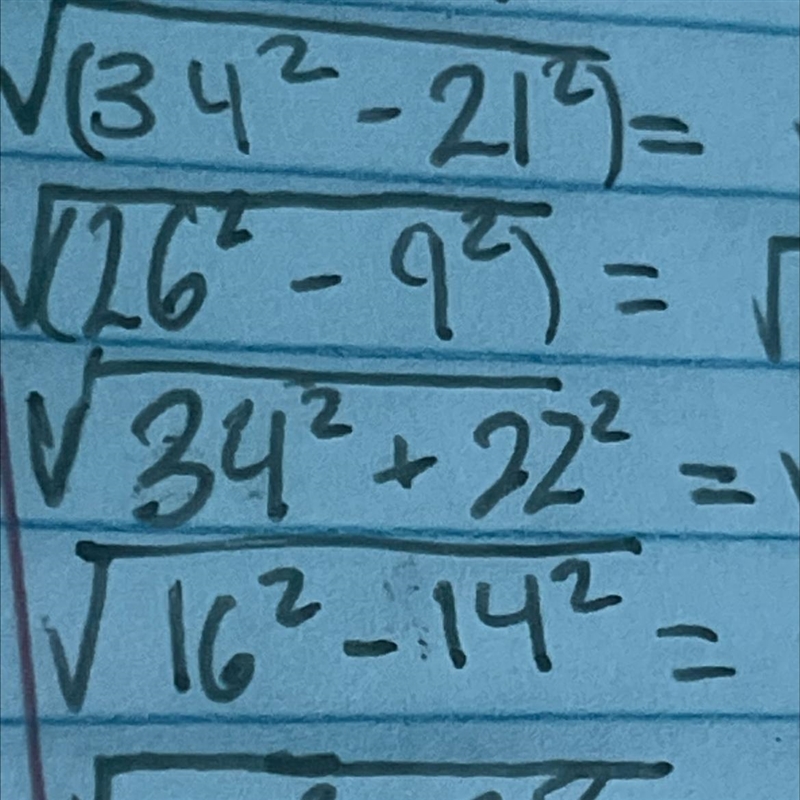 √(34² - 21²) =
√(26² - 9²) = √
√34² + 22² = √
√16² - 14² =